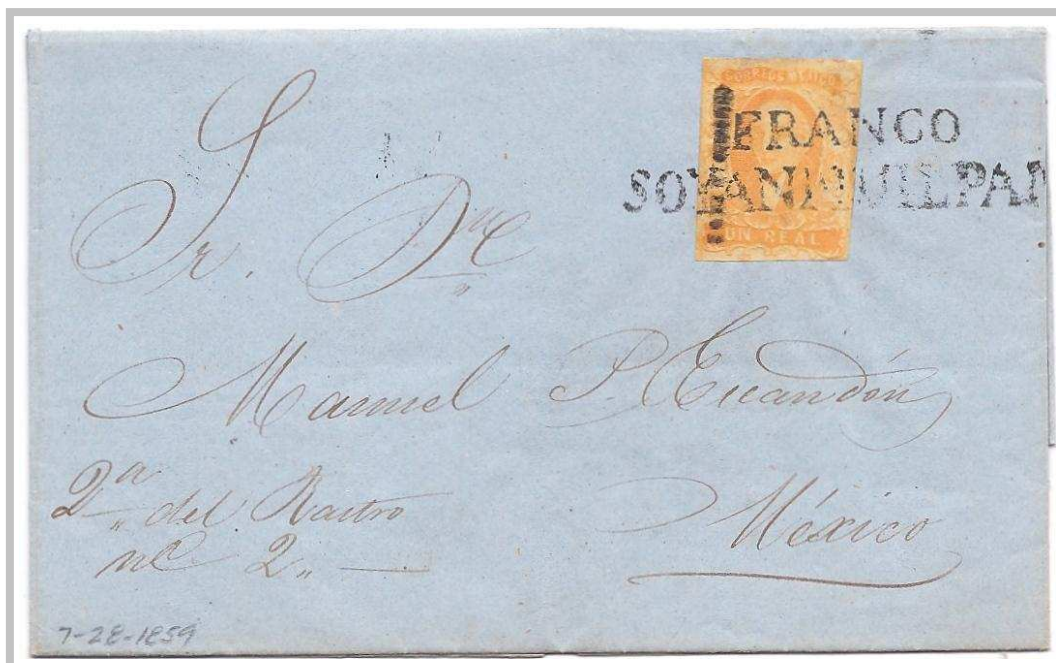 CORREOS MEXICO
FRANCO
SOYANIQUILPAN
UN REAL
Sr. Dn
Manuel P. Escandón
2a del Rastro
no 2
México
7-28-1859